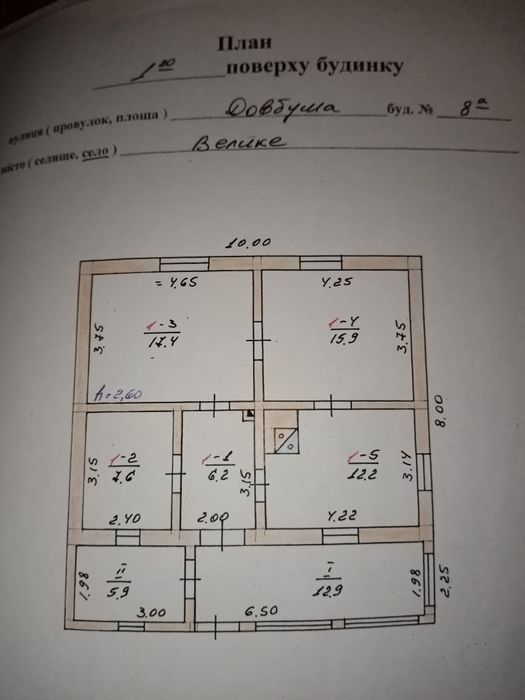 План
1го поверху будинку
вулиця ( провулок, площа ) Довбуша буд. № 8а
місто ( селище, село ) Велике
10.00
= 4.65
4.25
1-3
17.4
3.75
1-4
15.9
3.75
h=2,60
8.00
1-2
7.6
3.15
2.40
1-1
6.2
3.15
2.00
1-5
12.2
3.14
4.22
II
5.9
1.98
3.00
I
12.9
1.98
6.50
2.25